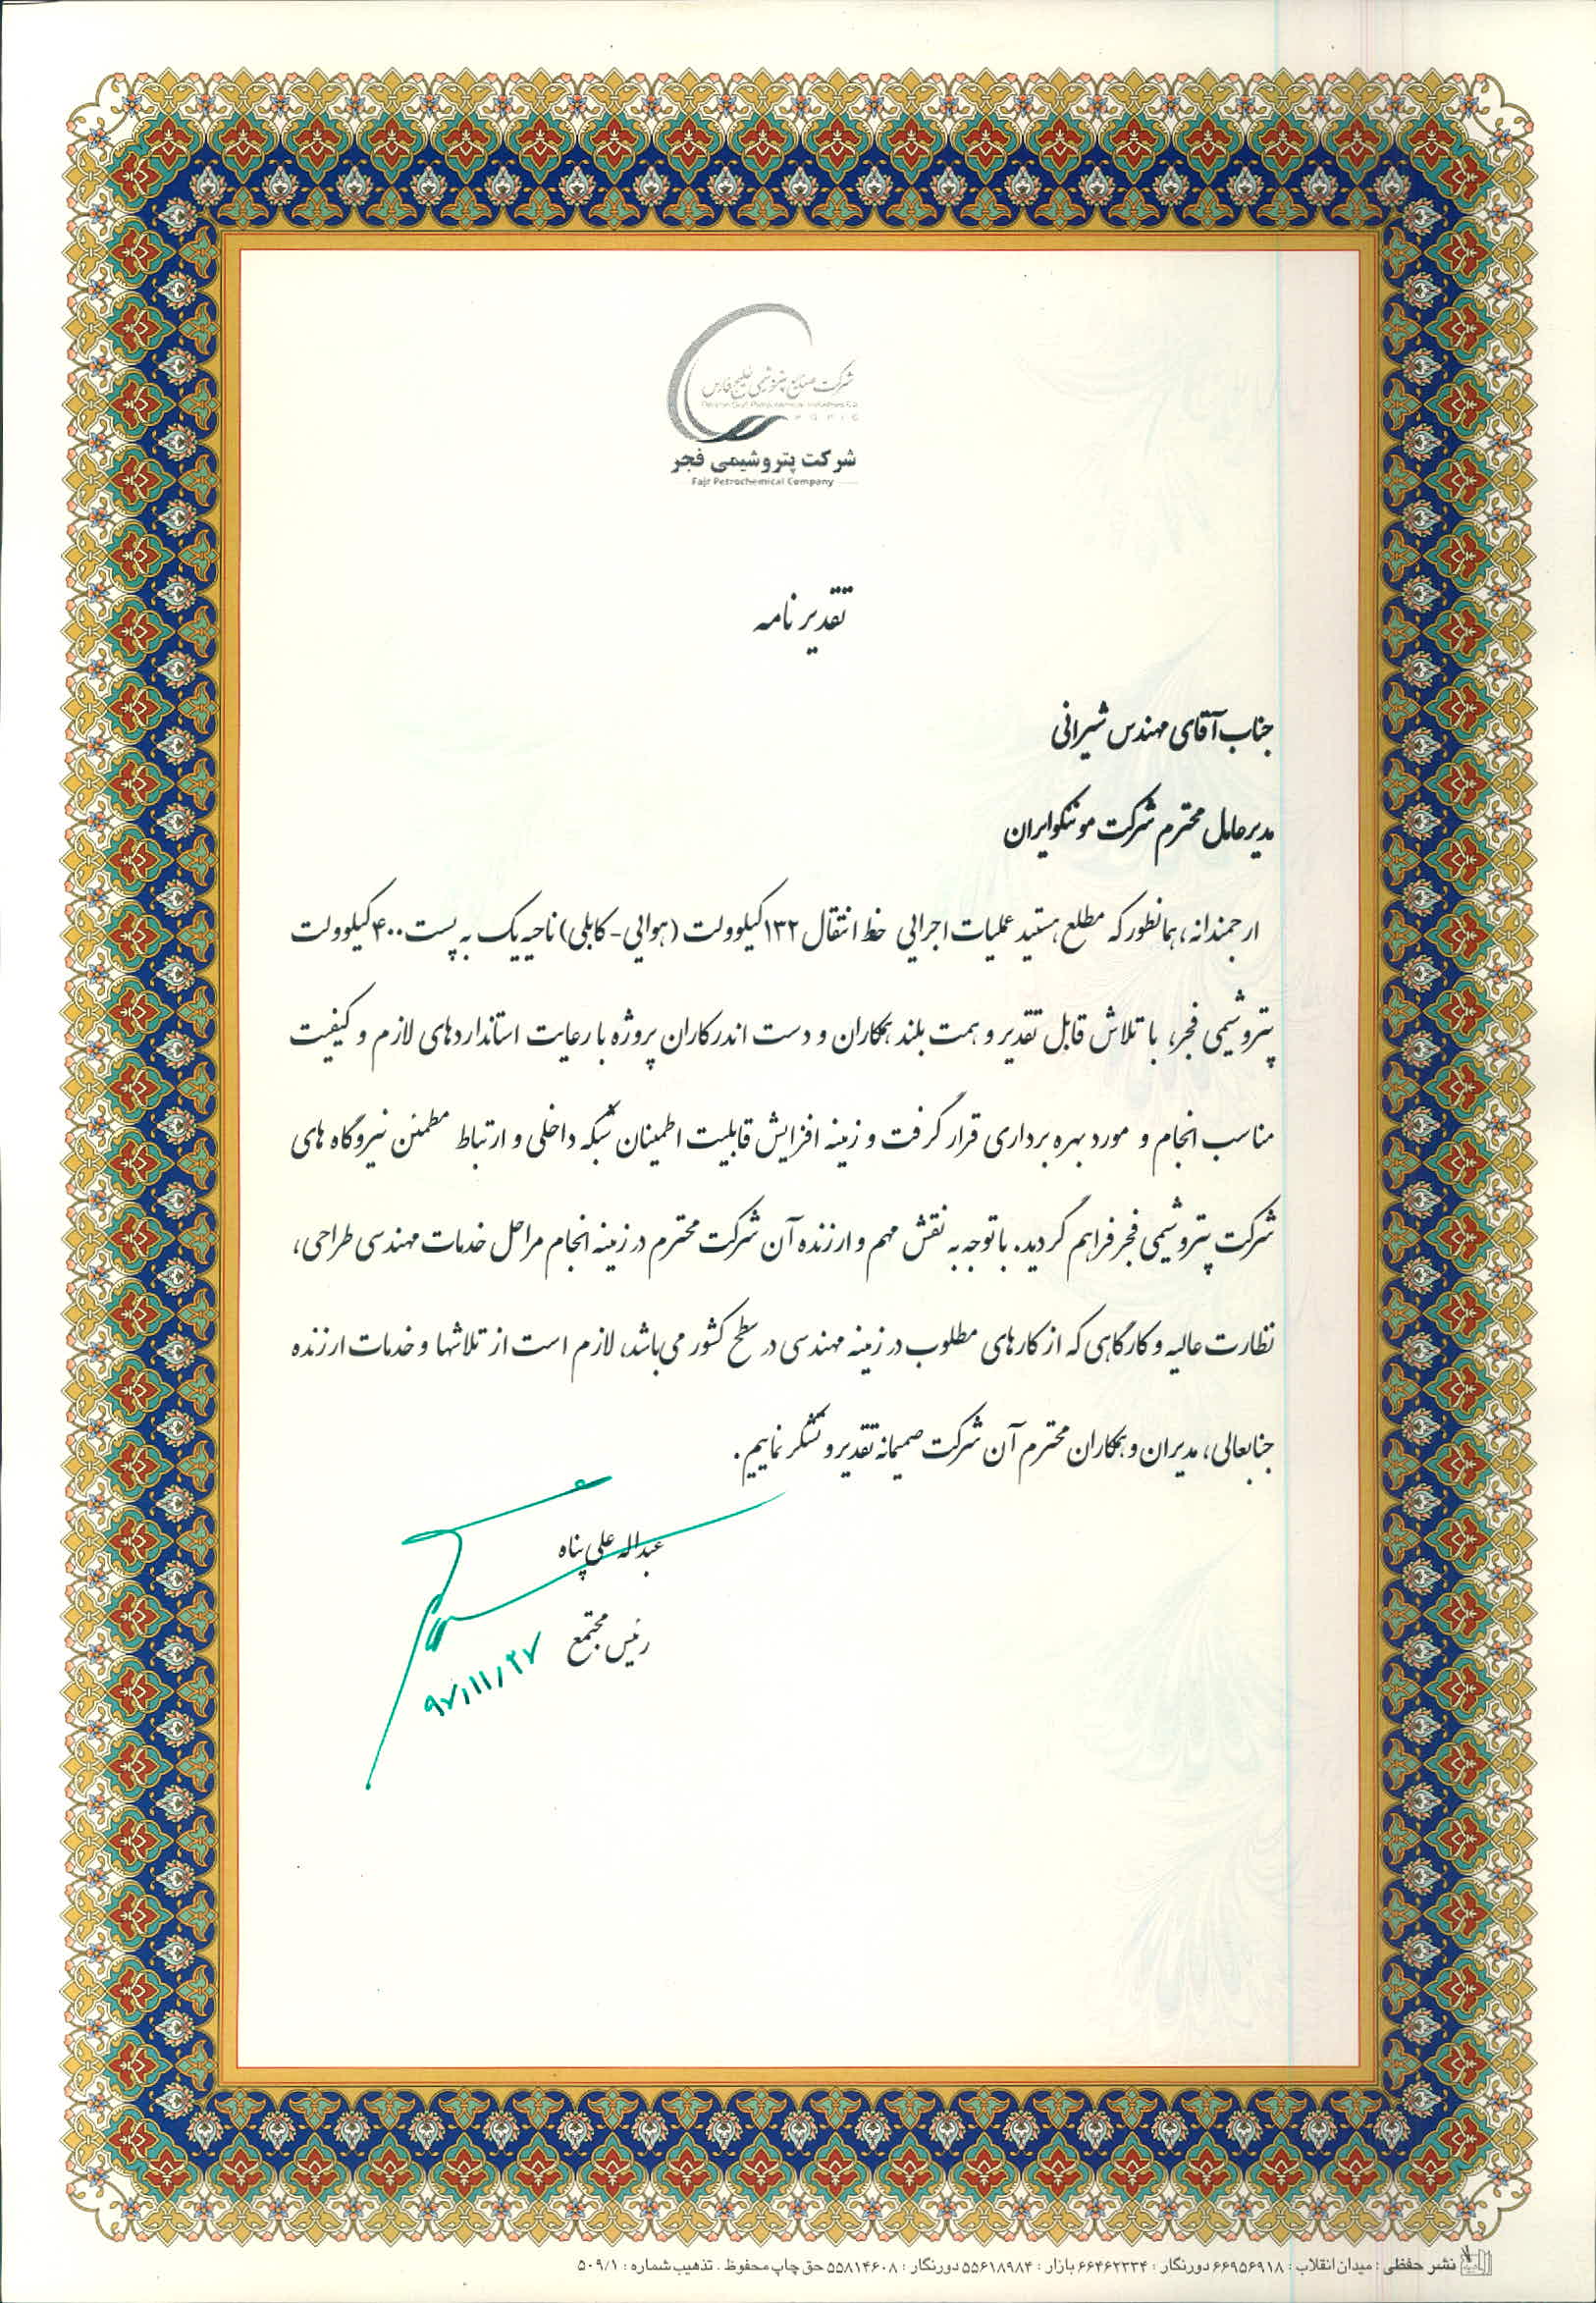 شرکت صنایع پتروشیمی خلیج فارس
Persian Gulf Petrochemical Industries Co.
P G P I C
شرکت پتروشیمی فجر
Fajr Petrochemical Company
تقدیرنامه
جناب آقای مهندس شیرانی
مدیرعامل محترم شرکت موننکو ایران
ارجمندانه، همانطور که مطلع هستید عملیات اجرایی خط انتقال ۱۳۲ کیلوولت (هوایی-کابلی) ناحیه یک به پست ۴۰۰ کیلوولت
پتروشیمی فجر، با تلاش قابل تقدیر و همت بلند همکاران و دست اندرکاران پروژه با رعایت استانداردهای لازم و کیفیت
مناسب انجام و مورد بهره برداری قرار گرفت و زمینه افزایش قابلیت اطمینان شبکه داخلی و ارتباط مطمئن نیروگاه های
شرکت پتروشیمی فجر فراهم گردید. با توجه به نقش مهم و ارزنده آن شرکت محترم در زمینه انجام مراحل خدمات مهندسی طراحی،
نظارت عالیه و کارگاهی که از کارهای مطلوب در زمینه مهندسی در سطح کشور می باشد، لازم است از تلاشها و خدمات ارزنده
جنابعالی، مدیران و همکاران محترم آن شرکت صمیمانه تقدیر و تشکر نماییم.
عبداله علی پناه
رئیس مجتمع
۹۷/۱۱/۲۷
نشر حفظی : میدان انقلاب : ۶۶۹۵۶۹۱۸ دورنگار : ۶۶۴۶۲۳۳۴ بازار : ۵۵۶۱۸۹۸۴ دورنگار : ۵۵۸۱۴۶۰۸ حق چاپ محفوظ . تذهیب شماره : ۵۰۹/۱